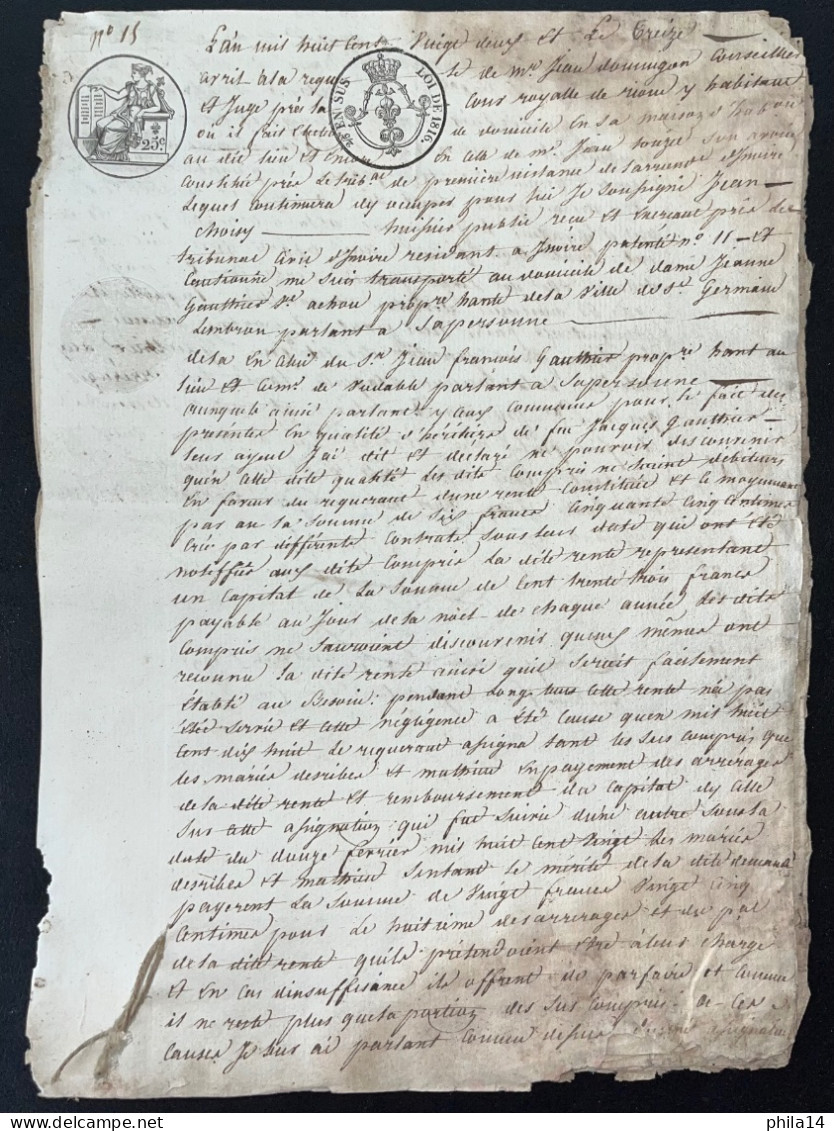 n° 15
L'an mil huit cent vingt deux et Le treize
avril à la requ te de mr Jean domingon Conseiller
et Juge près la Cour royalle de riom y habitant
où il fait de domicile en sa maison
au dit lieu et encore en celle de mr Jean son avoué
Constitué près Le trib.al de première instance de larrond.t d'Issoire
Lequel Continuera d'y occuper pour lui Je soussigné Jean
Choisy huissier public reçu et Exercant près le
tribunal Civil d'Issoire residant a Issoire patenté n° 11 et
Cautionné me suis transporté au domicile de dame Jeanne
Gauthier propre hante de la Ville de St Germain
Lembron parlant a sa personne
de la En celui du Sr Jean françois Gauthier propre hant au
lieu et Com.e de Vodable parlant a sa personne
auxquels ainsi parlant y aux Comme pour le fait des
présentes En qualité d'héritiers de feu Jacques Gauthier
leur ayeul J'ai dit et declaré ne pouvoir desconvenir
qu'en Cette dite qualité Les dits Compris ne soient débiteurs
En faveur du requerant d'une rente Constituée et Ce moyennant
par an la somme de six francs Cinquante Cinq Centimes
Crée par différents Contrats sous leurs dates qui ont été
notiffiés aux dits Compris La dite rente representant
un Capital de La somme de Cent trente trois francs
payable au Jour de la noël de chaque année Les dits
Compris ne sauroient disconvenir qu'eux mêmes ont
reconnu la dite rente ainsi qu'il seroit facilement
établi au Besoin: pendant longs tems Cette rente n'a pas
été servie et Cette négligence a été Cause qu'en mil huit
Cent dix huit Le requerant asigna tant les sus compris que
les mariés desribes et mathieu En payement des arrérages
de la dite rente et remboursement du Capital d'y Celle
sur Cette asignation qui fut suivie d'une autre sous la
date du douze fevrier mil huit Cent Vingt Les mariés
desribes et mathieu sentant le mérite de la dite demande
payerent La somme de Vingt francs Vingt Cinq
Centimes pour Le huitième des arrerages et du p.al
de la dite rente qu'ils prétendoient etre à leur charge
et En Cas d'insuffisance ils offrent de parfaire et Comme
il ne reste plus que la portion des sus compris a Ces
Causes Je sus ai parlant Comme dessus
25c.
25c. EN SUS. LOI DE 1816.
phila14